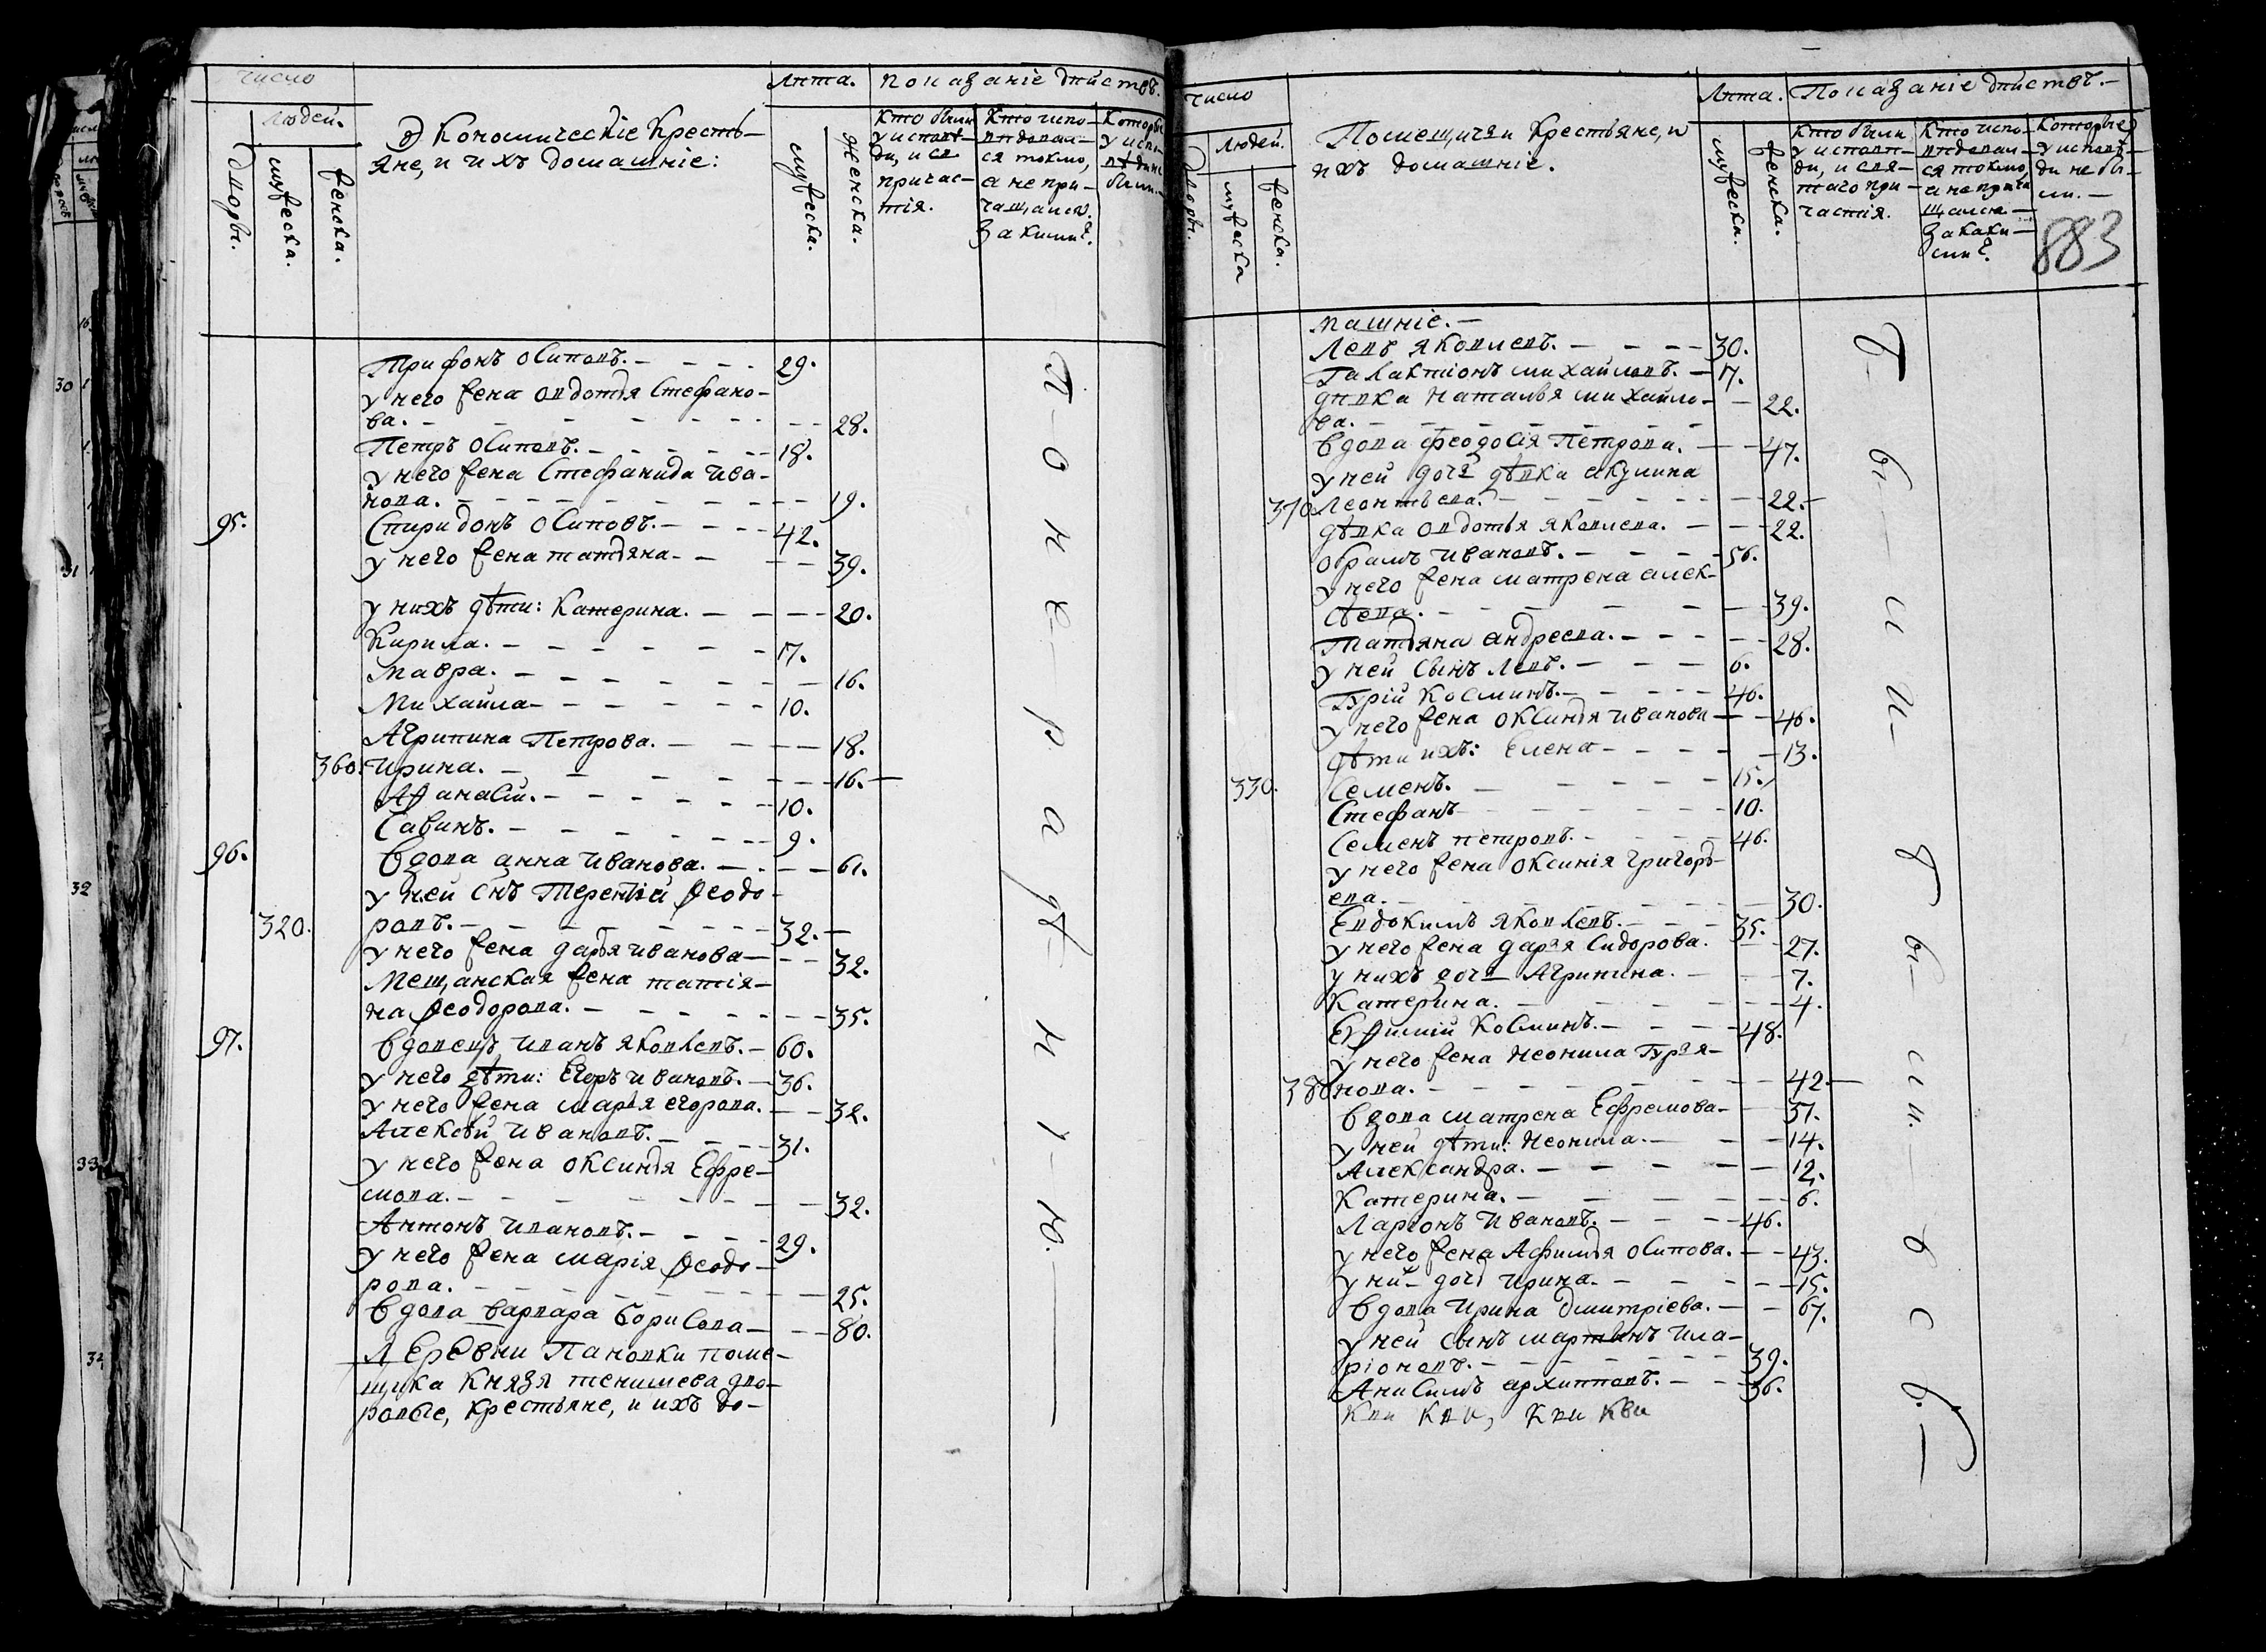 число
Людей.
дворы.
мужеска.
женска.
Экономическіе Кресть-
яне, и ихъ домашніе:
Лѣта.
мужеска.
женска.
показаніе дѣйствъ.
Кто были
у исповѣ-
ди, и св
причас-
тія.
Кто испо-
вѣдовал-
ся токмо,
а не при-
чащался.
За какимъ.
Которы
у испо-
вѣди не
были.
Трифонъ Осиповъ. - - - - 29.
у него жена Овдотья Стефано-
ва. - - - - - - - 28.
Петръ Осиповъ. - - - - - 18.
у него жена Стефанида Ива-
нова. - - - - - - - - 19.
95. Спиридонъ Осиповъ. - - - - 42.
у него жена татьяна - - - - 39.
у нихъ дѣти: Катерина. - - - - 20.
Кирила. - - - - - - 17.
Мавра. - - - - - - - - 16.
Михайла - - - - - - 10.
Агрипина Петрова. - - - - 18.
360. Ирина. - - - - - - - 16. -
Афанасій. - - - - - - 10.
Савинъ. - - - - - - 9.
96. Вдова анна Иванова. - - - - 61.
у ней снъ Терентій Феодо-
320. ровъ. - - - - - - - 32. -
у него жена дарья иванова - - - 32.
Мещанская жена татія-
на Феодорова. - - - - - - 35.
97. Вдовецъ иванъ Яковлевъ. - 60.
у него дѣти: Егоръ ивановъ. - 36.
у него жена марья егорова. - - 32.
Алексѣй ивановъ. - - - - 31.
у него жена оксинья Ефре-
мова. - - - - - - - - 32.
Антонъ ивановъ. - - - - 29.
у него жена марія Феодо-
рова. - - - - - - - - 25.
Вдова варвара борисова - - - 80.
Деревни Пановки поме-
щика Князя тенишева дво-
ровые, крестьяне, и ихъ до-
число
Людей.
дворы.
мужеска
женска.
Помещичьи Крестьяне, и
ихъ домашніе.
Лѣта.
мужеска.
женска.
Показаніе дѣйствъ. -
Кто были
у исповѣ-
ди, и свя-
таго при-
частія.
Кто испо-
вѣдовал-
ся токмо,
а не прича
щался -
За каки-
мъ.
Которые
у исповѣ-
ди не бы-
ли. -
883
машніе. -
Левъ яковлевъ. - - - - 30.
Галактіонъ михайловъ. - 17.
дѣвка наталья михайло-
ва. - - - - - - - 22.
Вдова феодосія Петрова. - - - 47.
у ней дочь дѣвка акулина
370 Леонтьева. - - - - - - - 22. -
дѣвка овдотья яковлева. - - - 22.
Обрамъ ивановъ. - - - - 56.
у него жена матрена алек-
сѣева. - - - - - - - 39.
Татьяна андреева. - - - - - 28.
у ней сынъ Левъ. - - - - 6.
Гурій Косминъ. - - - - - 46.
у него жена оксинья иванова - - 46.
дѣти ихъ: Елена - - - - - 13.
330. Семенъ. - - - - - 15.
Стефанъ - - - - - - 10.
Семенъ петровъ. - - - - 46.
у него жена оксинія григорь-
ева. - - - - - - - - 30.
Евдокимъ яковлевъ. - - - 35.
у него жена дарья Сидорова. - - 27.
у нихъ дочь Агрипина. - - - 7.
Катерина. - - - - - - - 4.
Ефимій Косминъ. - - - - 48.
у него жена неонила Гурья-
380 нова. - - - - - - - - 42 -
Вдова матрена Ефремова - - 51.
у ней дѣти: неонила. - - - - 14.
Александра. - - - - - - 12.
Катерина. - - - - - - - 6.
Ларіонъ ивановъ. - - - - 46.
у него жена Афимья осипова. - - 43.
у них дочь ирина. - - - - - 15.
Вдова Ирина дмитріева. - - 67.
у ней сынъ мартынъ ила-
ріоновъ. - - - - - - - 39.
Анисимъ архиповъ. - - - 36.